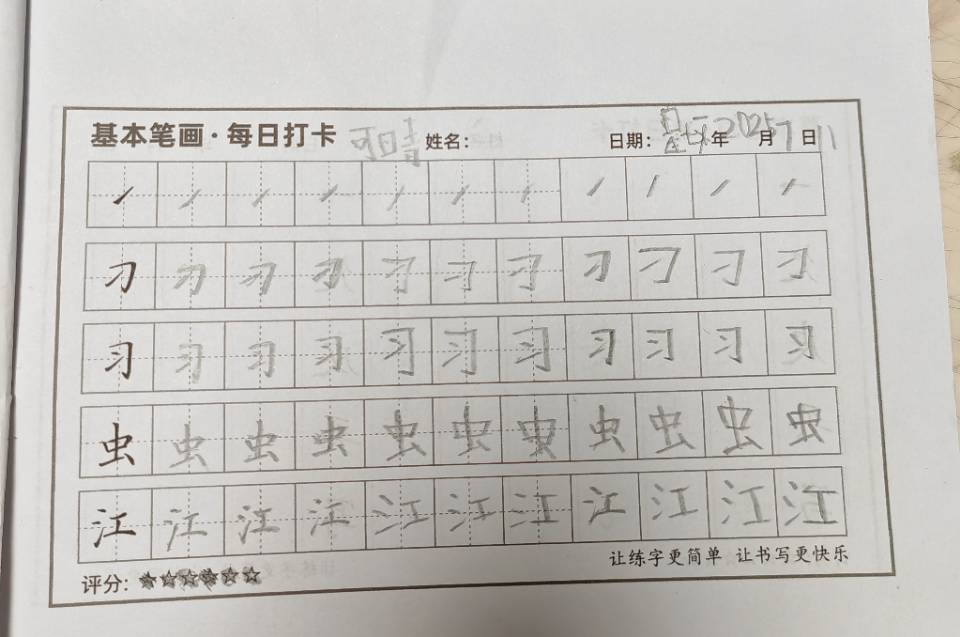 基本笔画·每日打卡 姓名： 日期： 2025年7月11日
㇀ ㇀ ㇀ ㇀ ㇀ ㇀ ㇀ ㇀ ㇀ ㇀ ㇀
刁 刁 刁 刁 刁 刁 刁 刁 刁 刁 刁
习 习 习 习 习 习 习 习 习 习 习
虫 虫 虫 虫 虫 虫 虫 虫 虫 虫 虫
江 江 江 江 江 江 江 江 江 江 江
让练字更简单 让书写更快乐
评分：☆☆☆☆☆☆